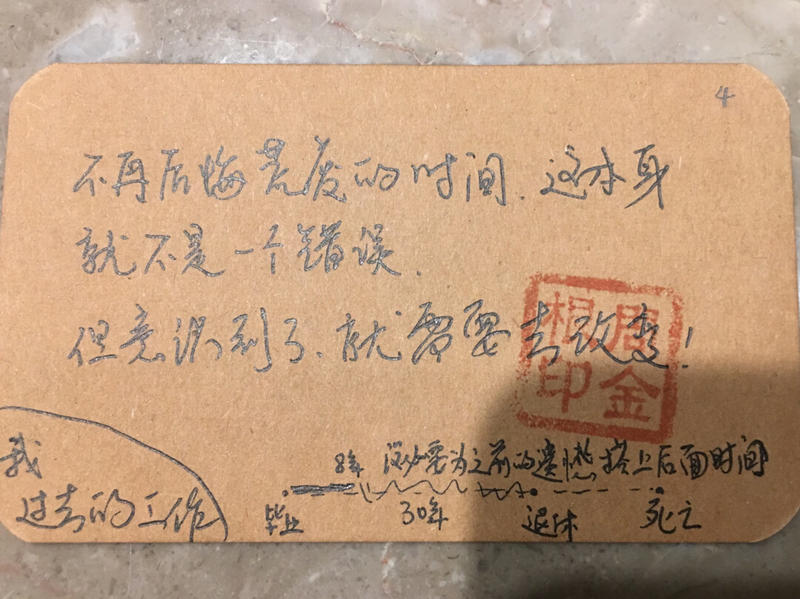 4
不再后悔荒废的时间.这本身
就不是一个错误.
但意识到了、就需要去改变!
周金桐印
我
过去的工作
8年 没必要为之前的遗憾搭上后面时间
毕业 30年 退休 死亡